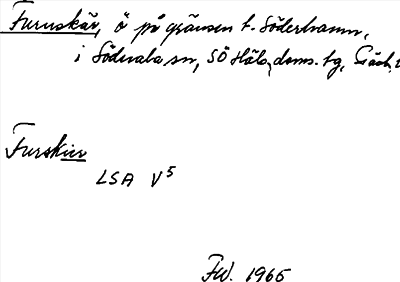 Furuskär, ö på gränsen t. Söderhamn,
i Söderala sn, SÖ Häls. doms. tg, Gäsh. l
Furskär
LSA V5
FW. 1965